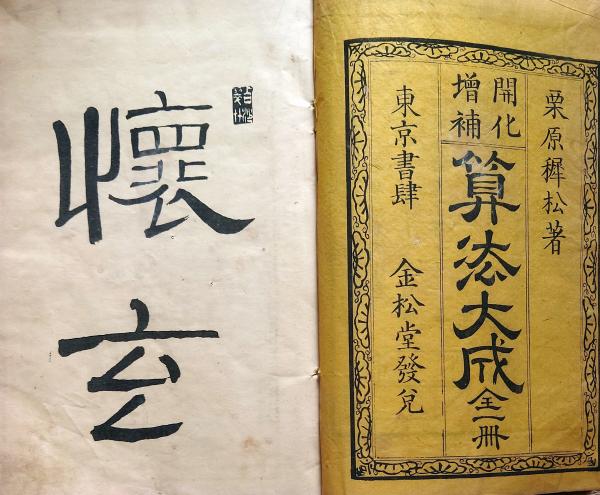 栗原穉松著
開化
增補
算法大成全一冊
東京書肆
金松堂發兌
懷玄